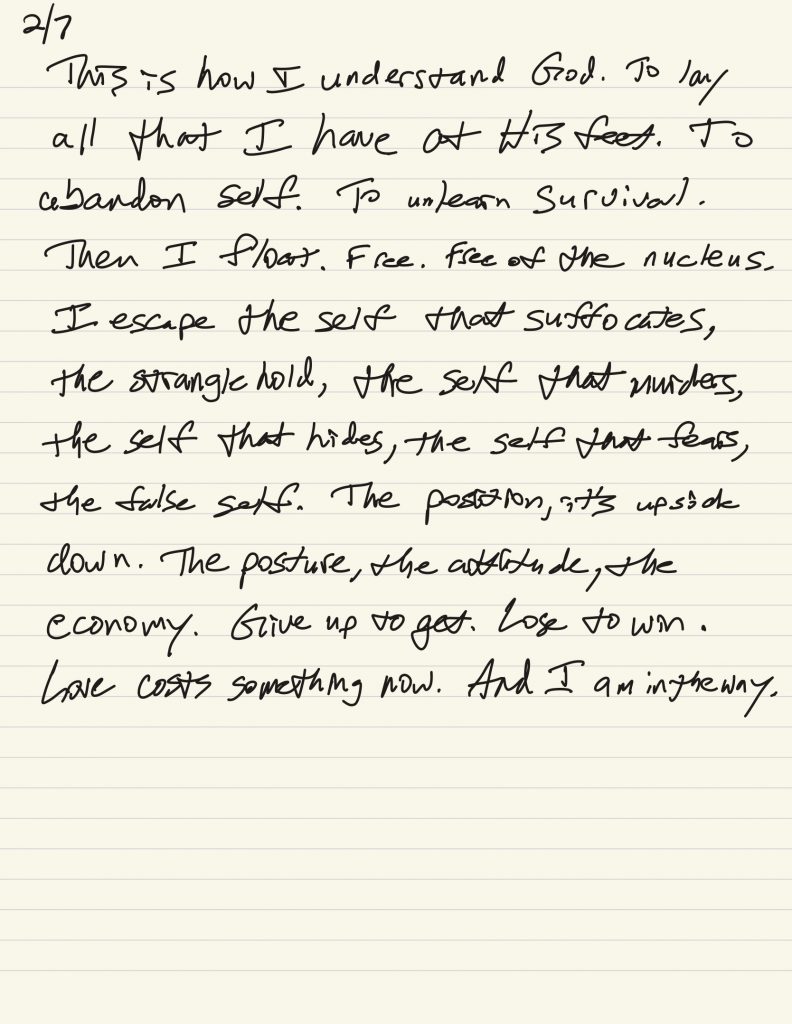 2/7
This is how I understand God. To lay
all that I have at His feet. To
abandon self. To unlearn survival.
Then I float. Free. Free of the nucleus.
I escape the self that suffocates,
the stranglehold, the self that murders,
the self that hides, the self that fears,
the false self. The position, it's upside
down. The posture, the attitude, the
economy. Give up to get. Lose to win.
Love costs something now. And I am in the way.